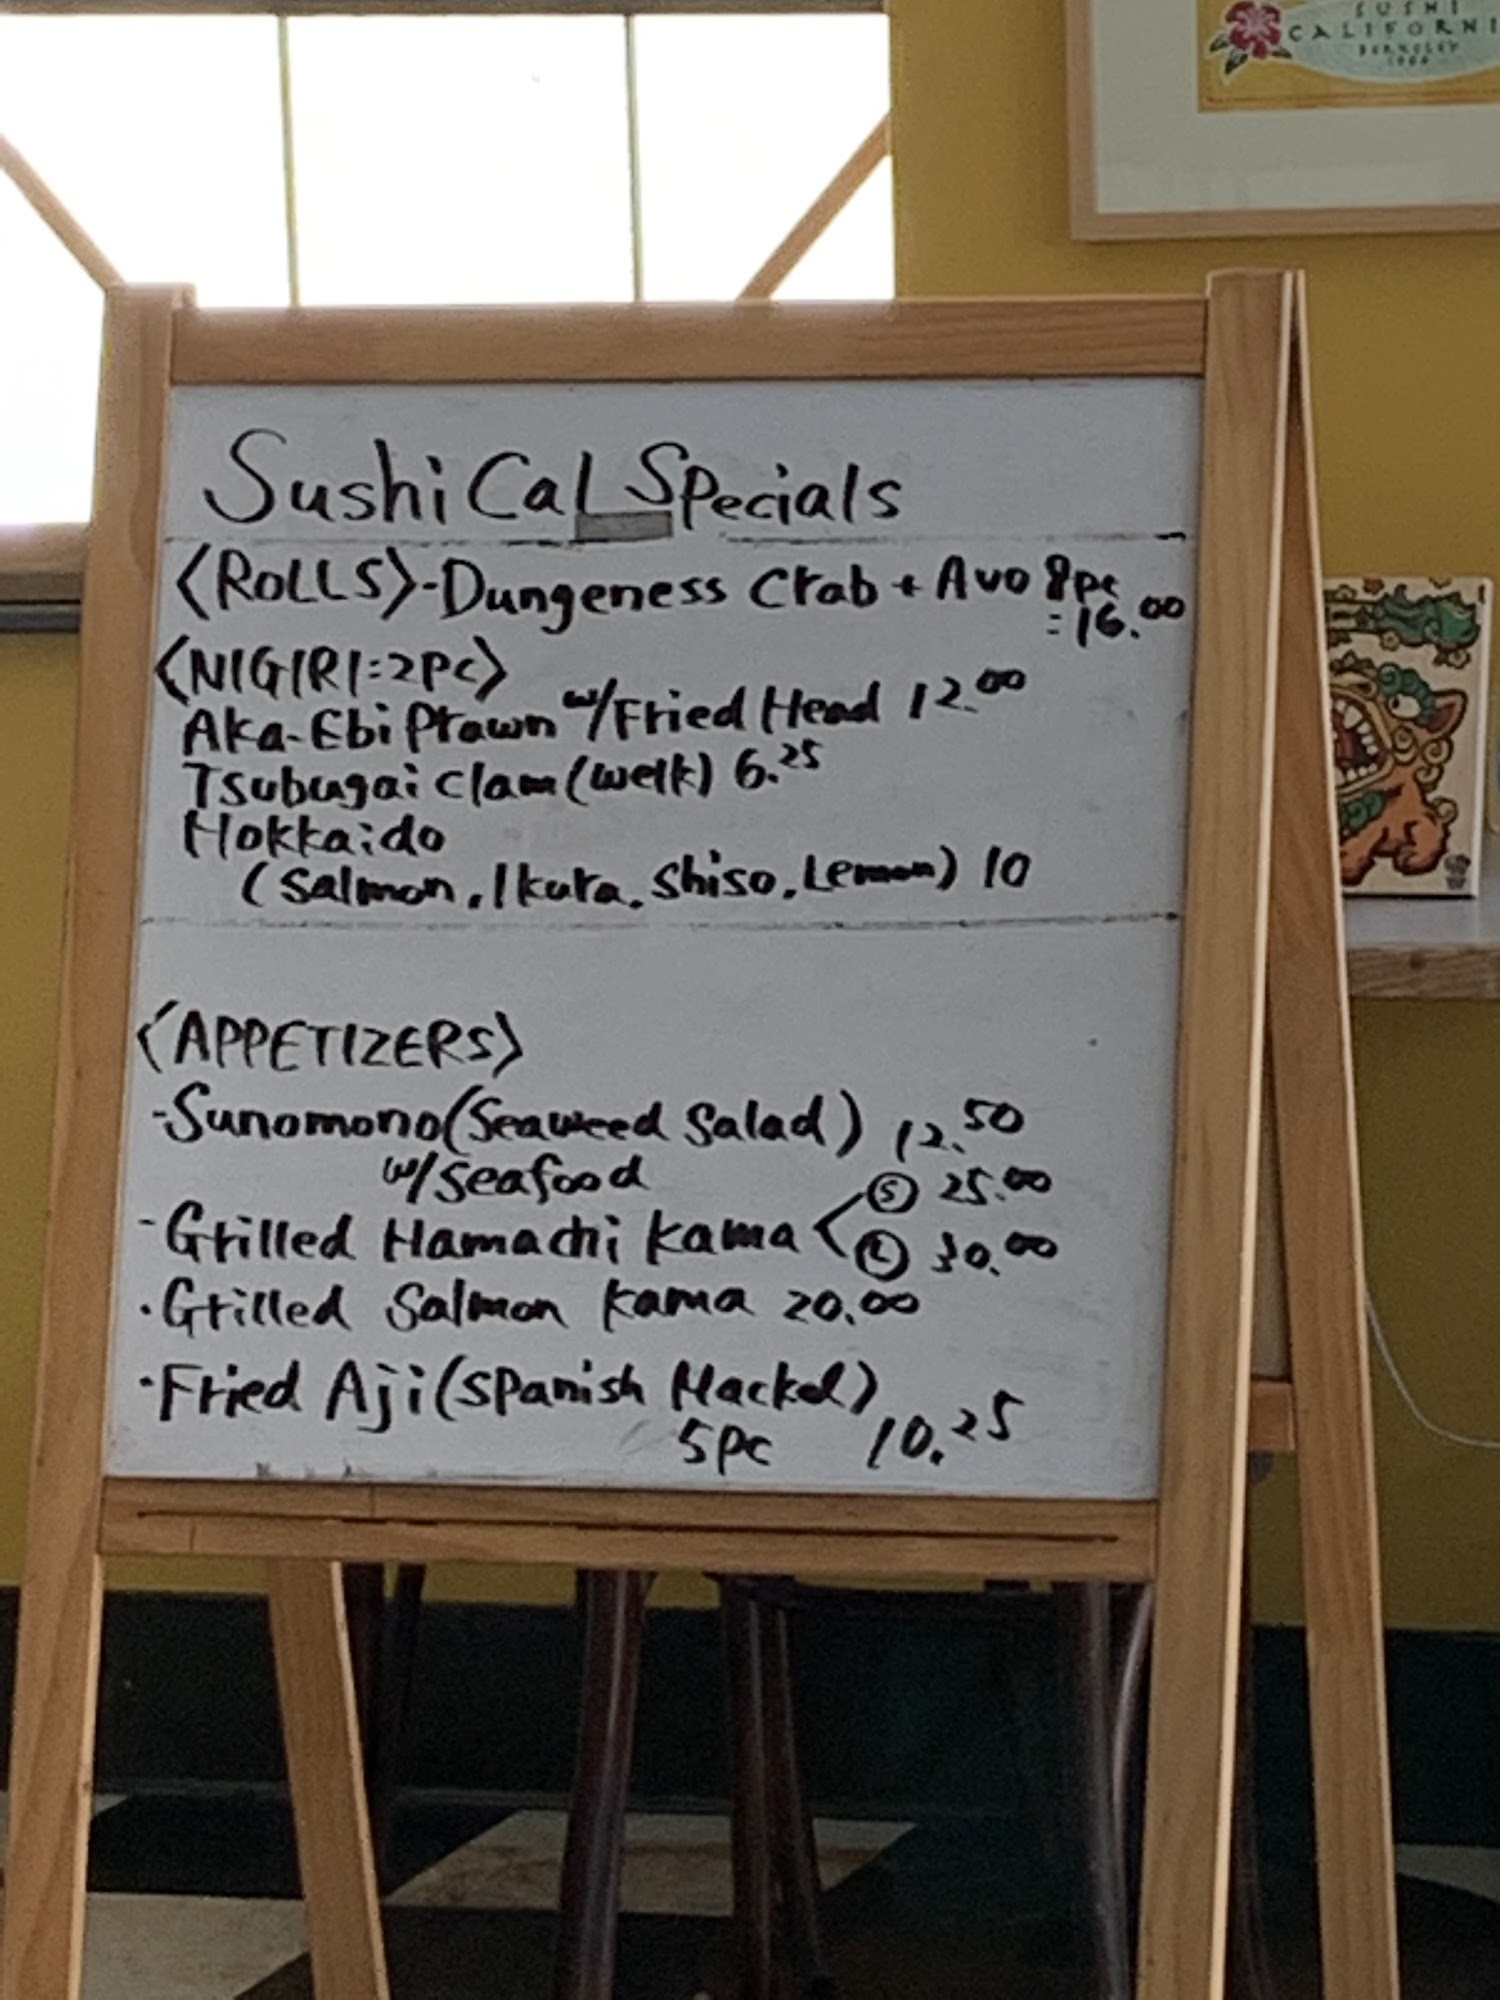 SUSHI
CALIFORNI
BERKELEY
Sushi Cal Specials
<ROLLS>-Dungeness Crab + Avo 8pc
=16.00
<NIGIRI=2PC>
Aka-Ebi Prawn w/Fried Head 12.00
Tsubugai Clam (welk) 6.25
Hokkaido
(Salmon, Ikura, Shiso, Lemon) 10
<APPETIZERS>
-Sunomono (Seaweed Salad) 12.50
w/Seafood
S 25.00
-Grilled Hamachi Kama <
L 30.00
·Grilled Salmon Kama 20.00
·Fried Aji (Spanish Mackel)
5pc 10.25